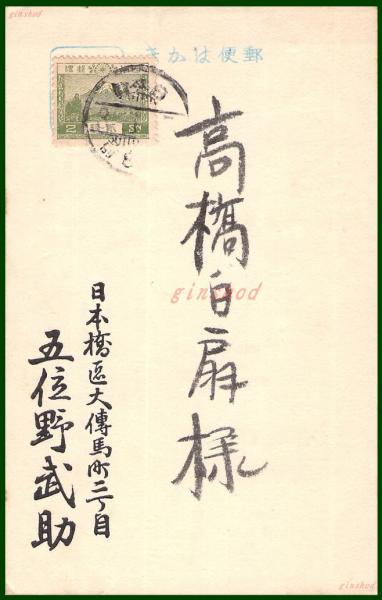 きかは便郵
高橋白扇様
日本橋區大傳馬町二丁目
五位野武助
ginshod
ginshod
ginshod